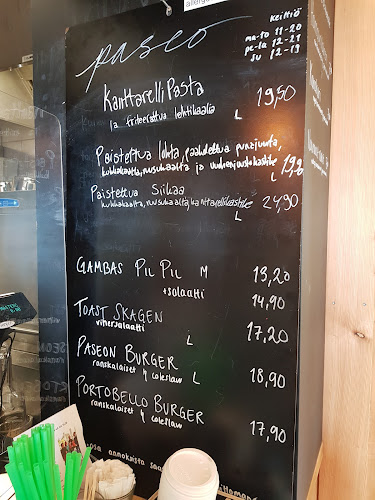 paseo
Keittiö
ma-to 11-20
pe-la 12-21
su 12-19
Kanttarelli Pasta 19,50
ja friteerattua lehtikaalia L
Paistettua lohta, paahdettua punajuurta,
kukkakaalta, ruusukaalta ja vuohenjuustokastike
L 19,90
Paistettua Siikaa
kukkakaalta, ruusukaalta, kantarellikastike 24,90
L
GAMBAS PIL PIL M 13,20
+salaatti 14,90
TOAST SKAGEN
vihersalaatti L 17,20
PASEON BURGER
ranskalaiset & coleslaw L 18,90
PORTOBELLO BURGER
ranskalaiset & coleslaw 17,90
osa annoksista saa